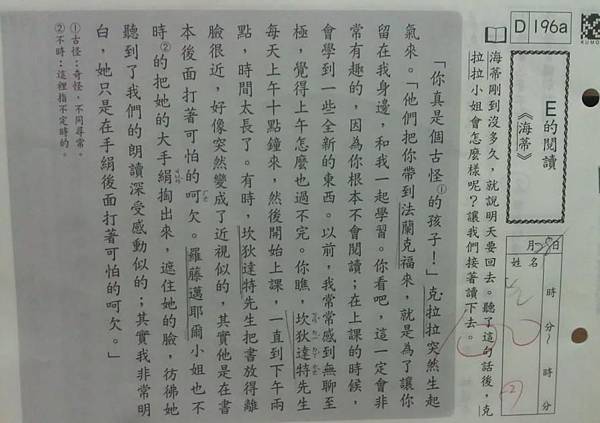 D 196a
KUMO
E的閱讀
《海蒂》
月 日
姓名
時 分~ 時 分
海蒂剛到沒多久，就說明天要回去。聽了這句話後，克
拉拉小姐會怎麼樣呢？讓我們接著讀下去。
「你真是個古怪①的孩子！」克拉拉突然生起
氣來。「他們把你帶到法蘭克福來，就是為了讓你
留在我身邊，和我一起學習。你看吧，這一定會非
常有趣的，因為你根本不會閱讀；在上課的時候，
會學到一些全新的東西。以前，我常常感到無聊至
極，覺得上午怎麼也過不完。你瞧，坎狄達特先生
每天上午十點鐘來，然後開始上課，一直到下午兩
點，時間太長了。有時，坎狄達特先生把書放得離
臉很近，好像突然變成了近視似的，其實他是在書
本後面打著可怕的呵欠。羅藤邁耶爾小姐也不
時②的把她的大手絹掏出來，遮住她的臉，彷彿她
聽到了我們的朗讀深受感動似的；其實我非常明
白，她只是在手絹後面打著可怕的呵欠。」
①古怪：奇怪，不同尋常。
②不時：這裡指不定時的。